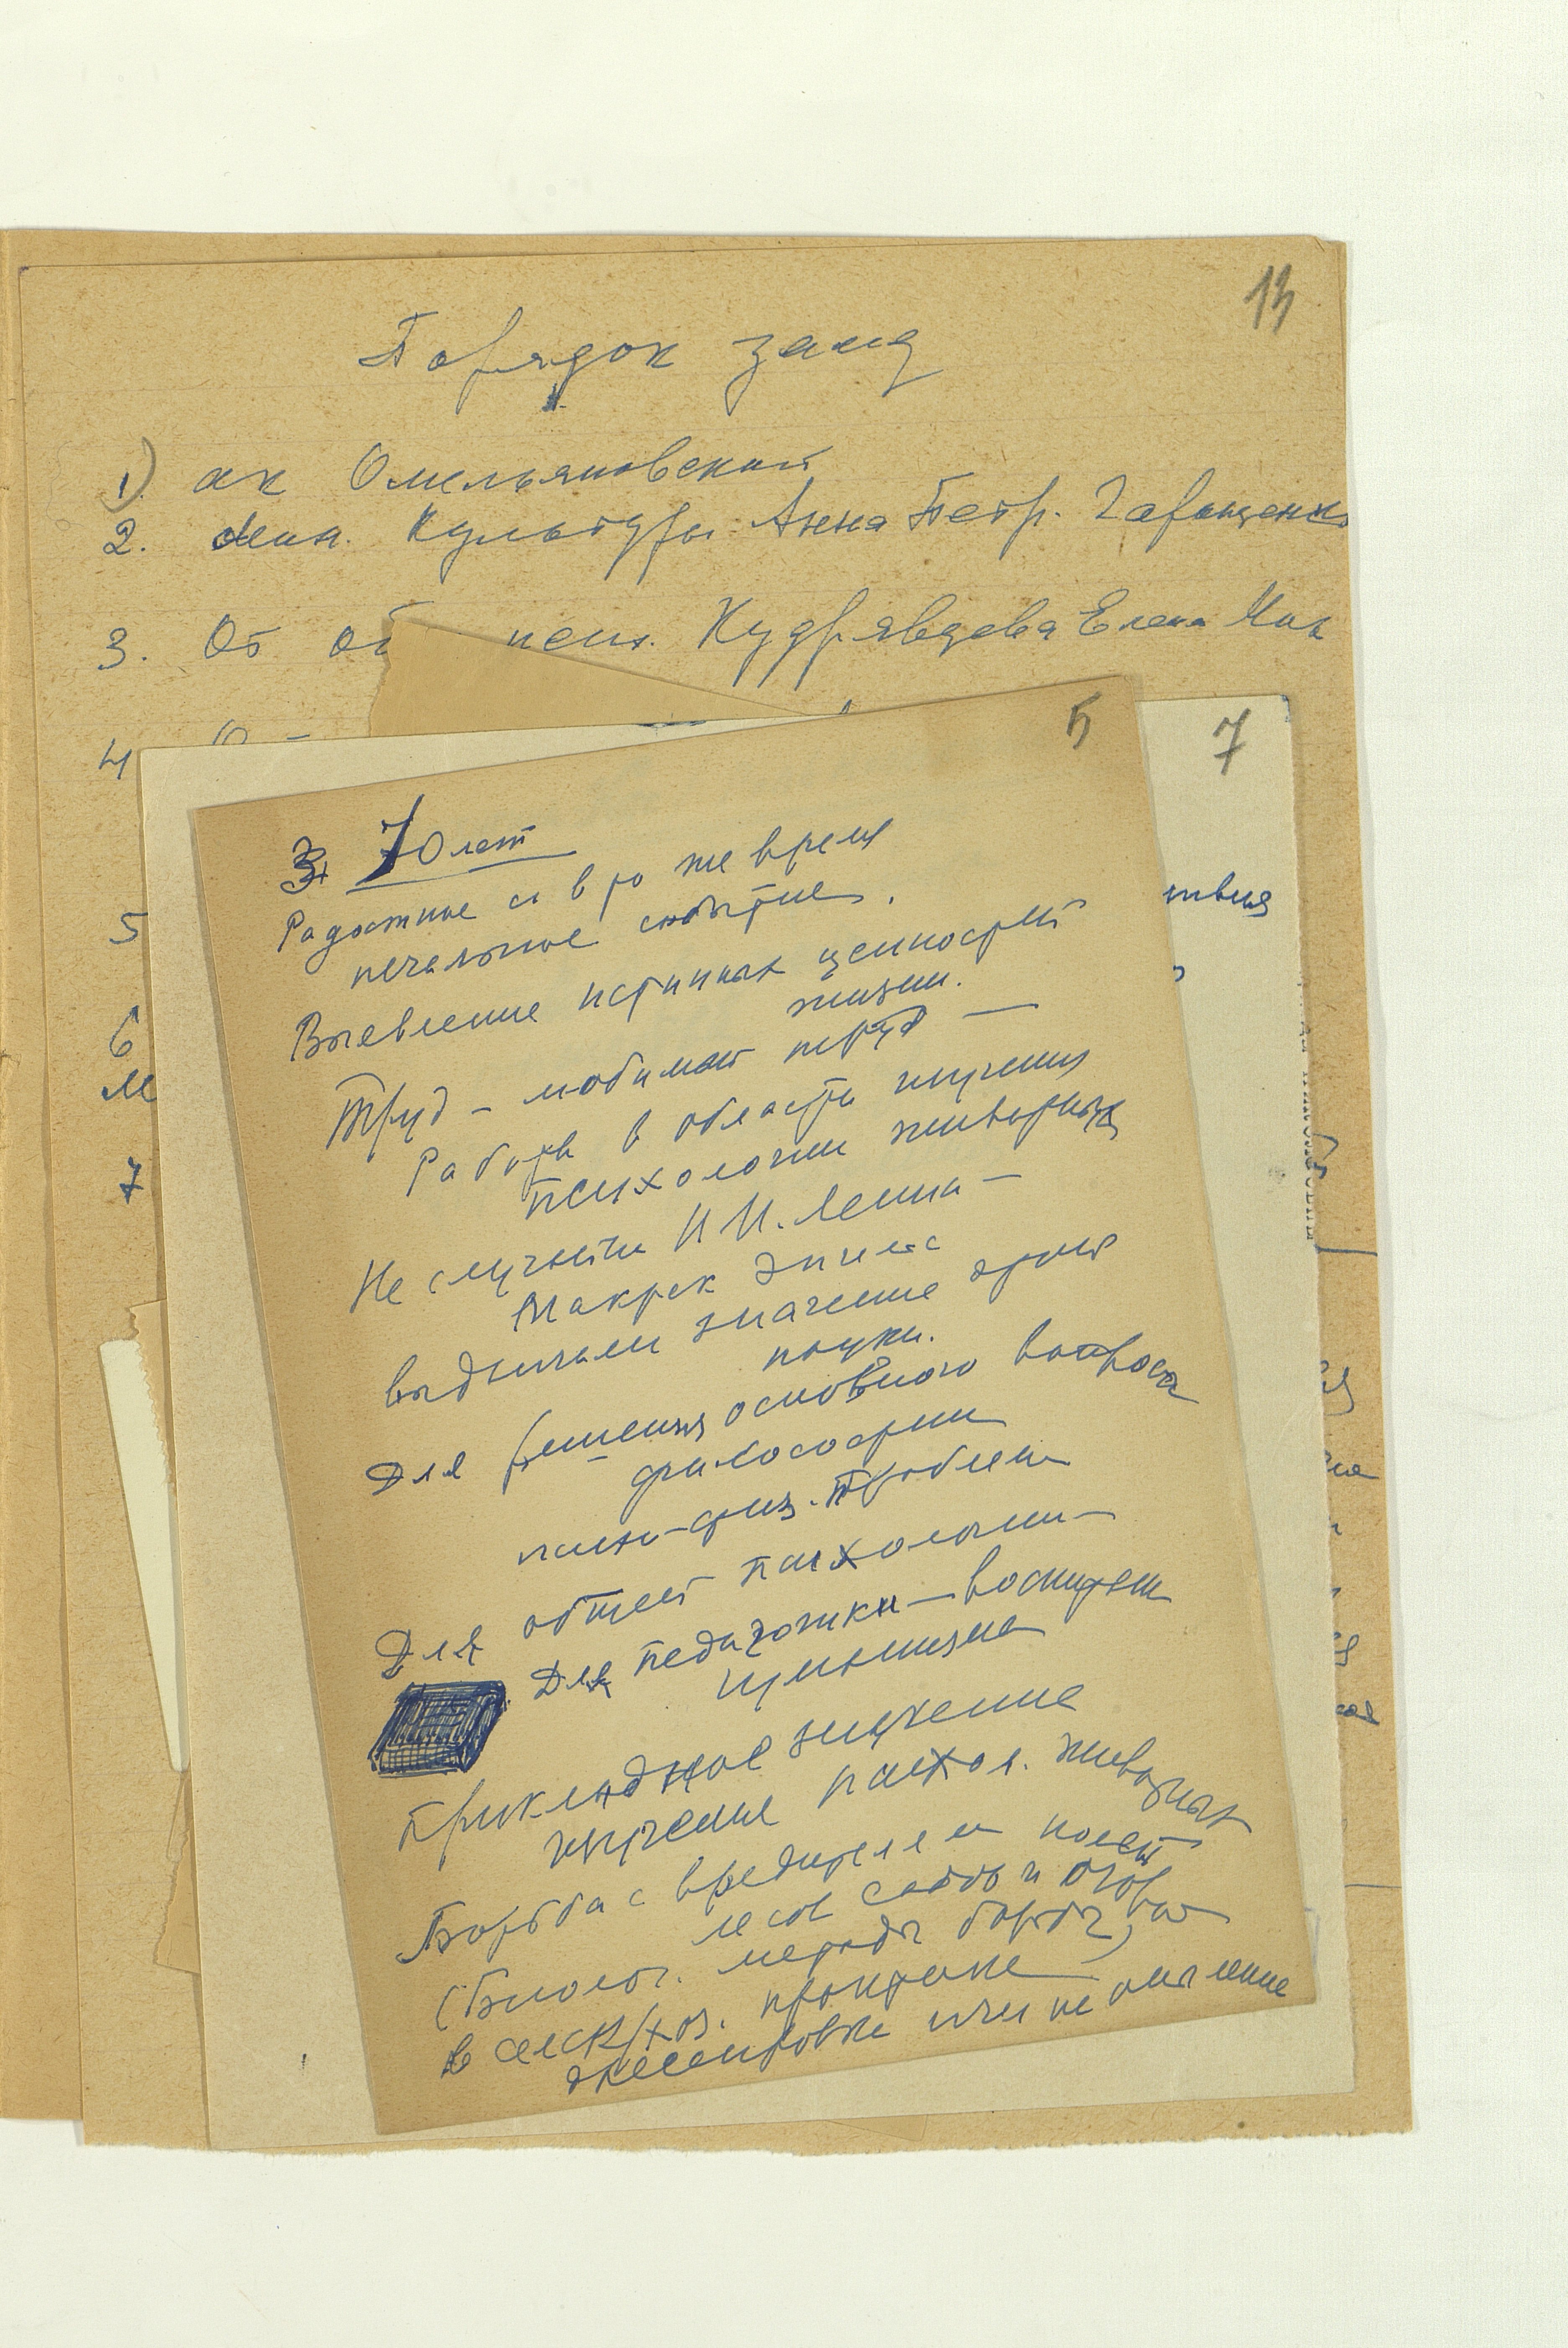 13
Порядок засед
1). ак Омельяновский
2. Мин. Культуры Анна Петр. Гаращенко
3. От об псих. Кудрявцева Елена Ник
4
5
6
м
7
7
5
3. 70 лет
Радостные и в то же время
печальное событие.
Выевление истинных ценностей
жизни.
Труд – любимый труд —
Работа в области изучения
психологии животных
Не случайно Ленин –
Маркс Энгельс
выдвигали значение этой
науки.
Для решения основного вопроса
философии
психо-физ. проблем
Для общей психологии –
Для педагогики – воспитан
Прикладное значение
изучение психол. животных
Борьба с вредителем полей
лесов садов и огор
(Биолог. методы борьбы),
в сельск/хоз. практике
дрессировка пчел на опыление